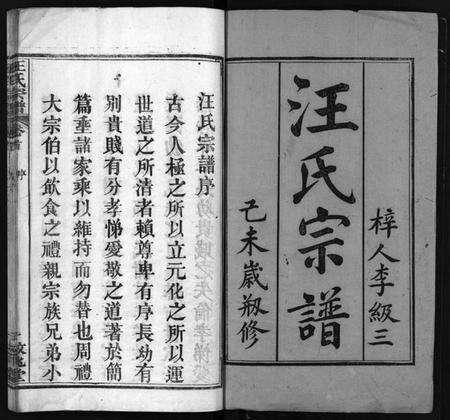 梓人李級三
汪氏宗譜
己未歲刱修
汪氏宗譜序
古今人極之所以立元化之所以運
世道之所清者賴尊卑有序長幼有
別貴賤有分孝悌愛敬之道著於簡
篇垂諸家乘以維持而勿替也周禮
大宗伯以飲食之禮親宗族兄弟小
汪氏宗譜
卷首
序